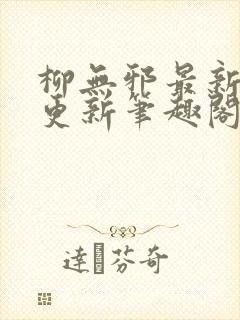 柳無邪最新
更新筆趣閣
達芬奇